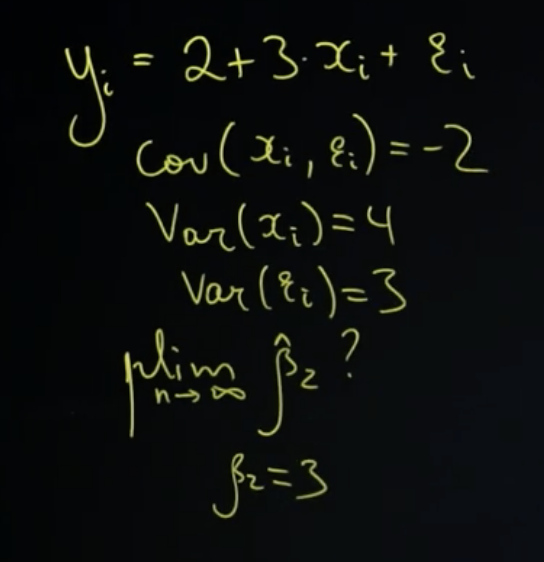 yᵢ = 2+3·xᵢ+ εᵢ
Cov(xᵢ, εᵢ)=-2
Var(xᵢ)=4
Var(εᵢ)=3
plim n→∞ β̂₂ ?
β₂=3